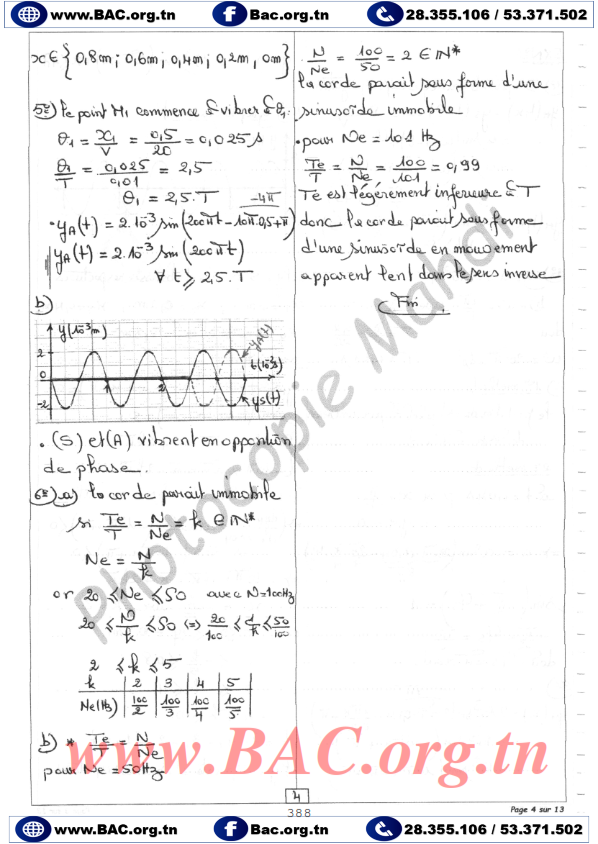 www.BAC.org.tn Bac.org.tn 28.355.106 / 53.371.502
x ∈ {0,8m ; 0,6m ; 0,4m ; 0,2m , 0m}
5°) a) le point M₁ commence à vibrer à θ₁.
θ₁ = x₁/V = 0,5/20 = 0,025 s
θ₁/T = 0,025/0,01 = 2,5
θ₁ = 2,5.T
-4π
• yA(t) = 2.10⁻³ sin(200πt - 10π.0,5 + π)
yA(t) = 2.10⁻³ sin(200πt)
∀ t ⩾ 2,5.T
b)
y(10⁻³m)
yA(t)
2
0
1
2
t(10⁻²s)
-2
yS(t)
• (S) et (A) vibrent en opposition
de phase.
6°) a) la corde parait immobile
si Te/T = N/Ne = k ∈ IN*
Ne = N/k
or 20 ⩽ Ne ⩽ 50 avec N=100Hz
20 ⩽ N/k ⩽ 50 ⇔ 20/100 ⩽ 1/k ⩽ 50/100
2 ⩽ k ⩽ 5
k | 2 | 3 | 4 | 5
Ne(Hz) | 100/2 | 100/3 | 100/4 | 100/5
b) * Te/T = N/Ne
pour Ne = 50Hz
N/Ne = 100/50 = 2 ∈ IN*
la corde parait sous forme d'une
sinusoïde immobile
• pour Ne = 101 Hz
Te/T = N/Ne = 100/101 = 0,99
Te est légèrement inferieure à T
donc la corde parait sous forme
d'une sinusoïde en mouvement
apparent lent dans le sens inverse
Fin
Photocopie Mahdi
www.BAC.org.tn
4
388
Page 4 sur 13
www.BAC.org.tn Bac.org.tn 28.355.106 / 53.371.502